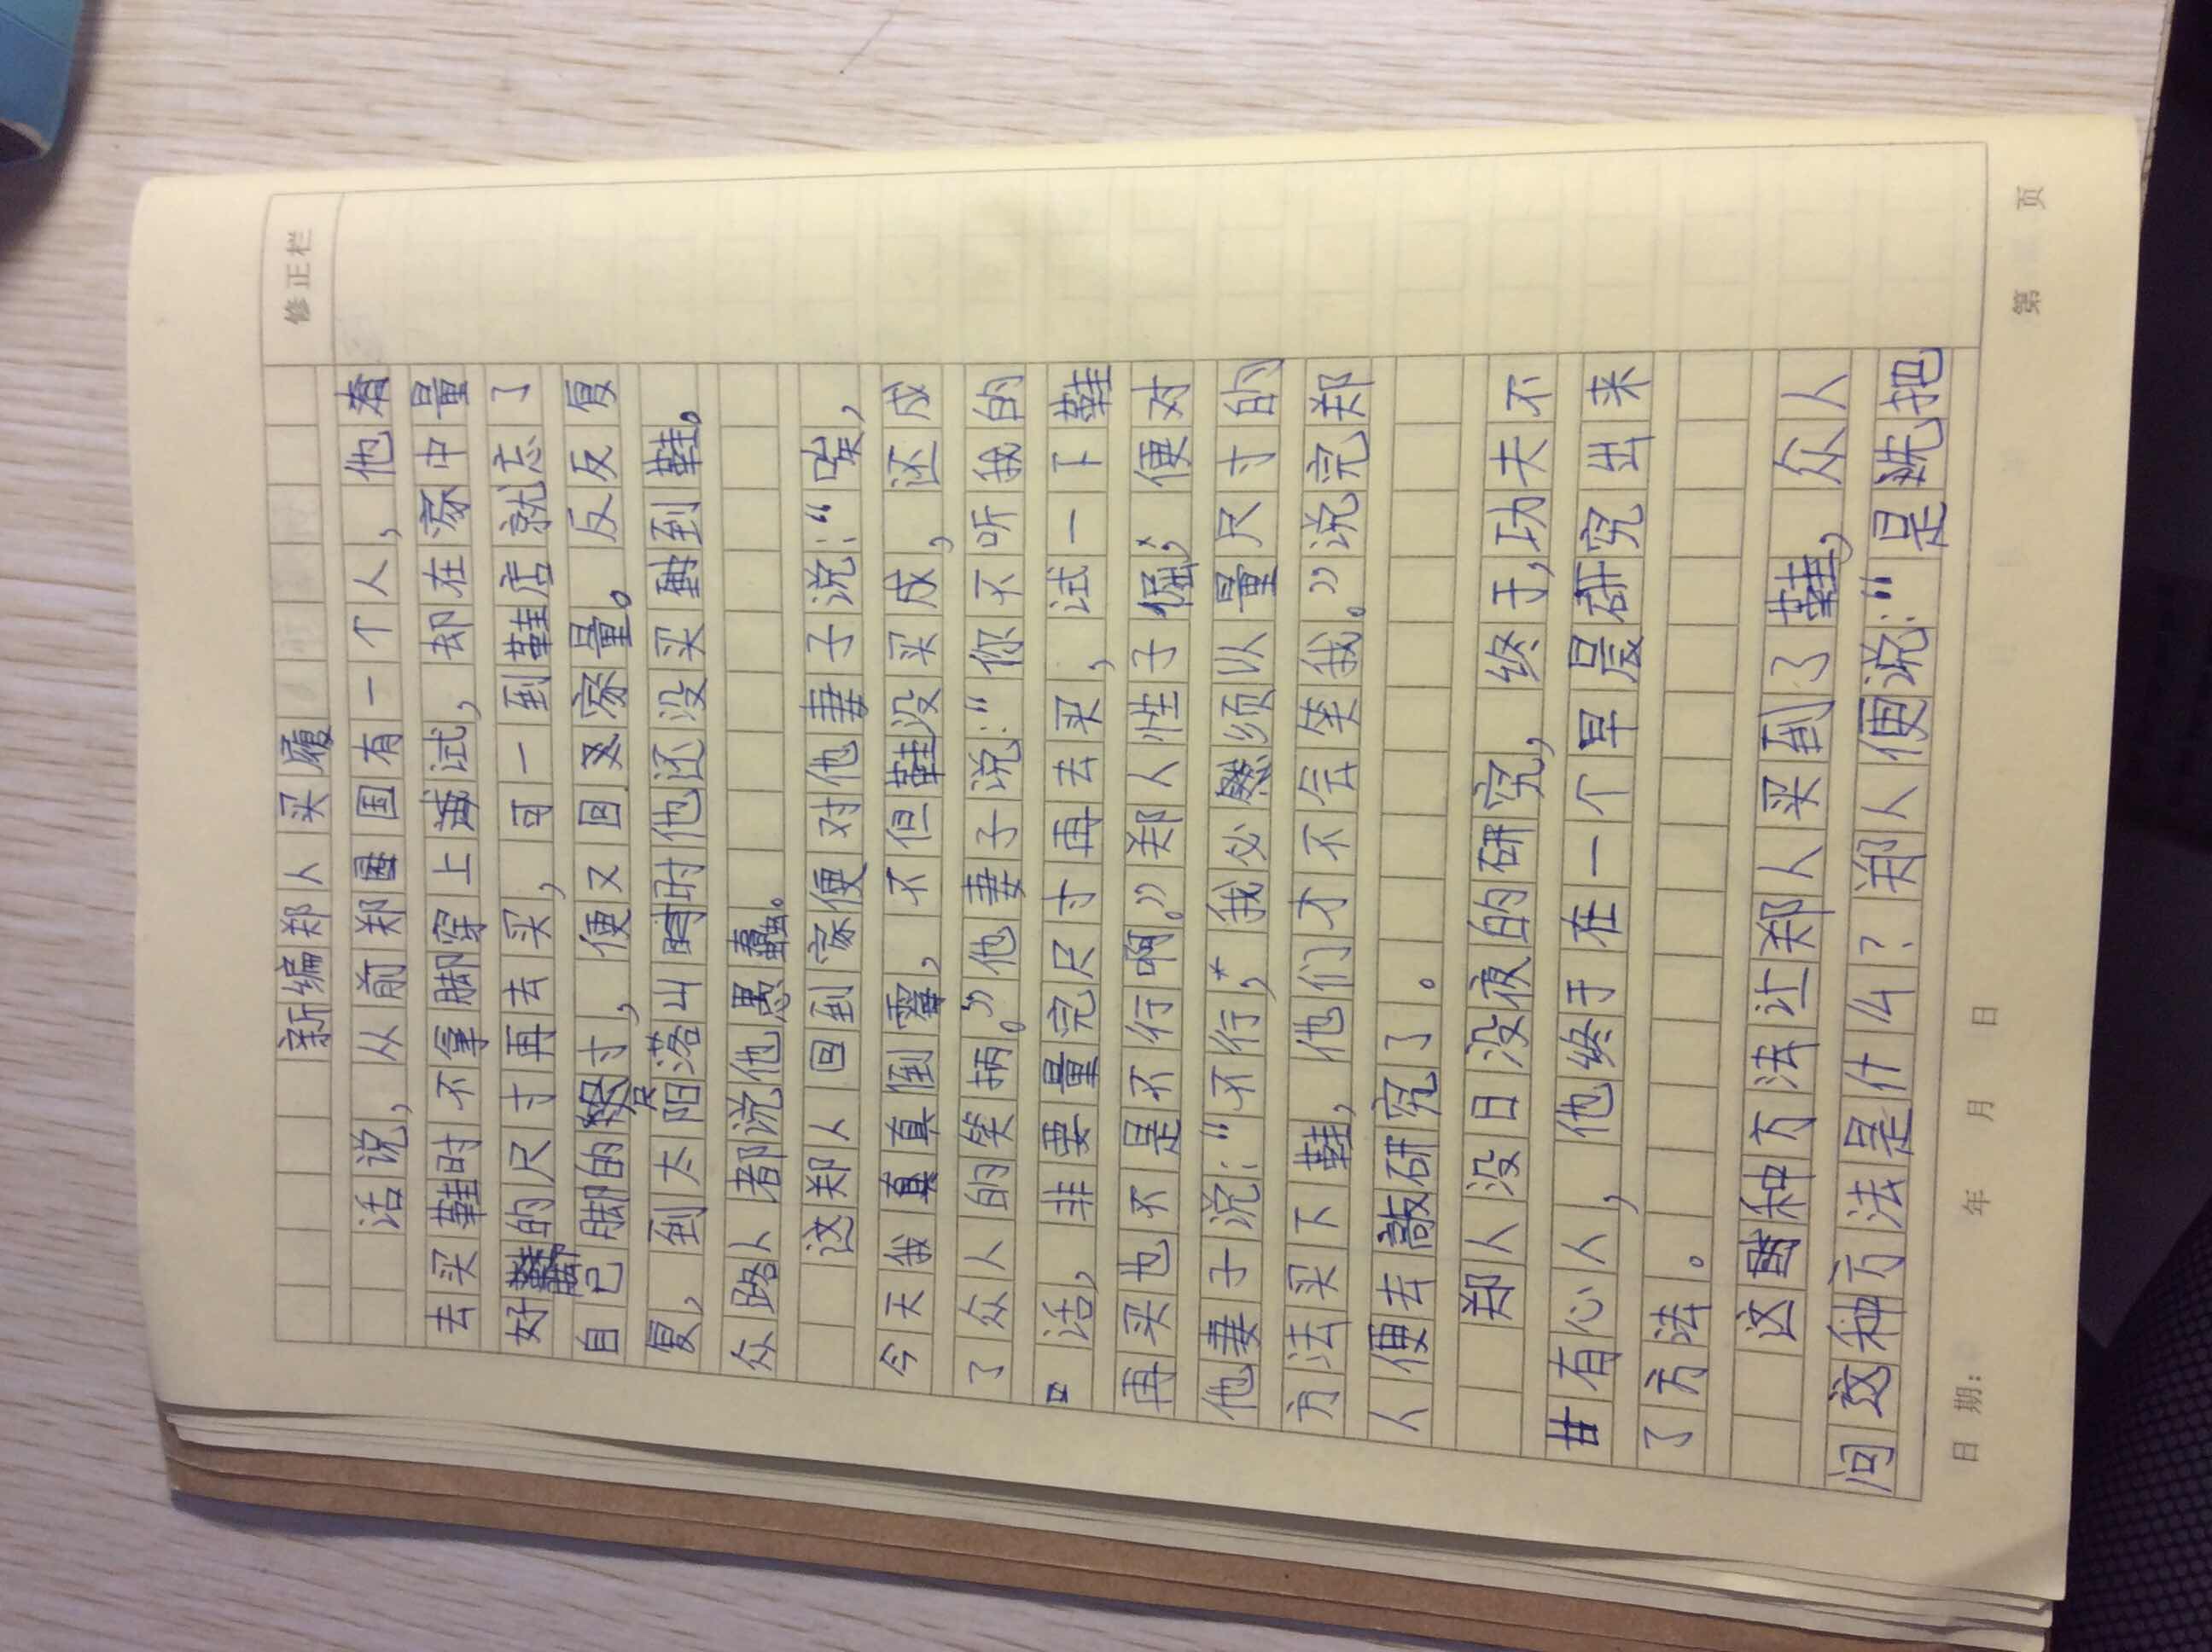 修正栏
新编郑人买履
话说，从前郑国有一个人，他
去买鞋时不拿脚穿上试试，却在家中量
好的尺寸再去买，可一到鞋店就忘了
自己脚的尺寸，便又回家量。反反复
复，到太阳落山时他还没买到鞋。
众路人都说他愚蠢。
这郑人回到家便对他妻子说：“唉，
今天我真真倒霉，不但鞋没买成，还成
了众人的笑柄。”他妻子说：“你不听我的
话，非要量完尺寸再去买，试一下鞋
再买也不是不行啊。”郑人性子倔，便对
他妻子说：“不行，我必须以量尺寸的
方法买下鞋，他们才不会笑我。”说完郑
人便去研究了。
郑人没日没夜的研究，终于，功夫不
有心人，他终于在一个早晨研究出来
了方法。
这种方法让郑人买到了鞋，众人
问这种方法是什么？郑人便说：“是先把
日期： 年 月 日
第 页